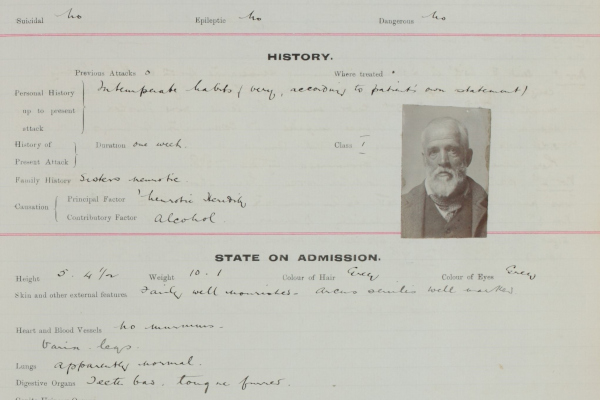 Suicidal No Epileptic No Dangerous No
HISTORY.
Previous Attacks 0 Where treated
Personal History up to present attack Intemperate habits (very, according to patient's own statement)
History of Present Attack Duration one week. Class I
Family History Sisters neurotic.
Causation Principal Factor ? Neurotic Heredity
Contributory Factor Alcohol.
STATE ON ADMISSION.
Height 5. 4½ Weight 10. 1 Colour of Hair Grey Colour of Eyes Grey
Skin and other external features Fairly well nourished. Arcus senilis well marked
Heart and Blood Vessels No murmurs.
legs.
Lungs apparently normal.
Digestive Organs Teeth bad. tongue furred.